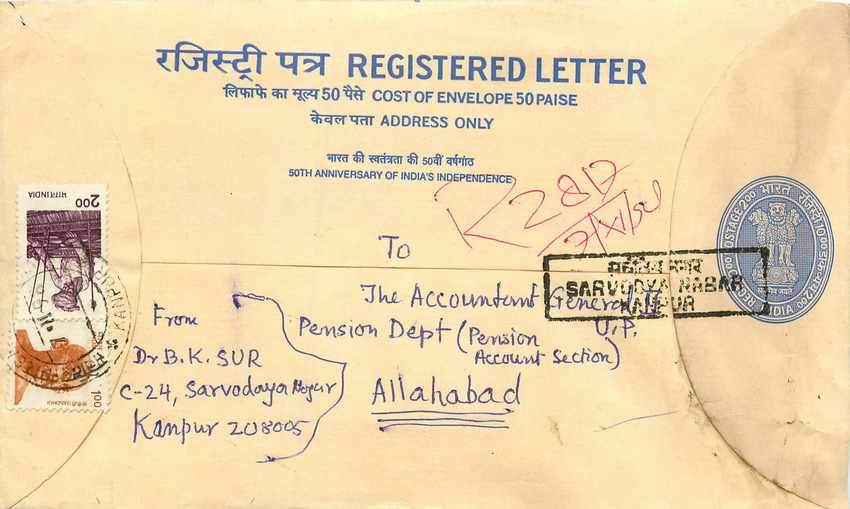 रजिस्ट्री पत्र REGISTERED LETTER
लिफाफे का मूल्य 50 पैसे COST OF ENVELOPE 50 PAISE
केवल पता ADDRESS ONLY
भारत की स्वतंत्रता की 50वीं वर्षगांठ
50TH ANNIVERSARY OF INDIA'S INDEPENDENCE
R 2817
To
The Accountant General II
U.P.
Pension Dept (Pension
Account Section)
Allahabad
From
Dr B. K. SUR
C-24, Sarvodaya Nagar
Kanpur 208005
SARVODYA NAGAR
KANPUR
भारत INDIA
2.00
1.00
KANPUR
POSTAGE 200 भारत
INDIA